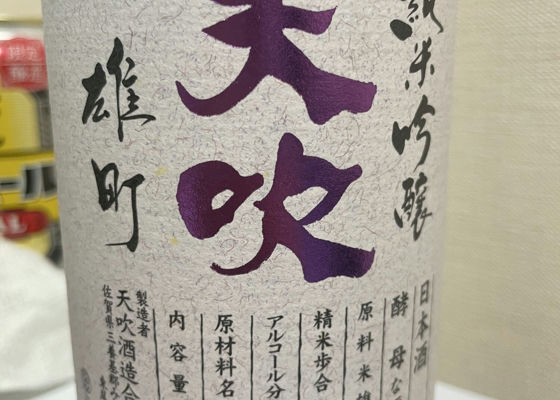 純米吟醸
天吹
雄町
日本酒
酵母な
原料米雄
精米歩合
アルコール分
原材料名
内容量
製造者
天吹酒造合
佐賀県三養基郡み